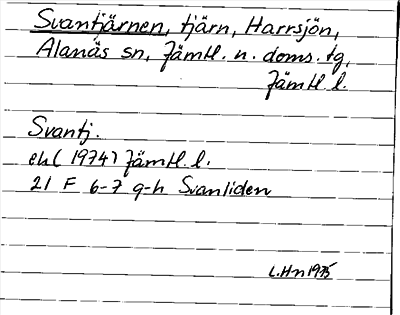 Svantjärnen, tjärn, Harrsjön,
Alanäs sn, Jämtl. n. doms. tg,
Jämtl l.
Svantj.
ek( 1974) Jämtl. l.
21 F 6-7 g-h Svanliden
L.Hn 1975